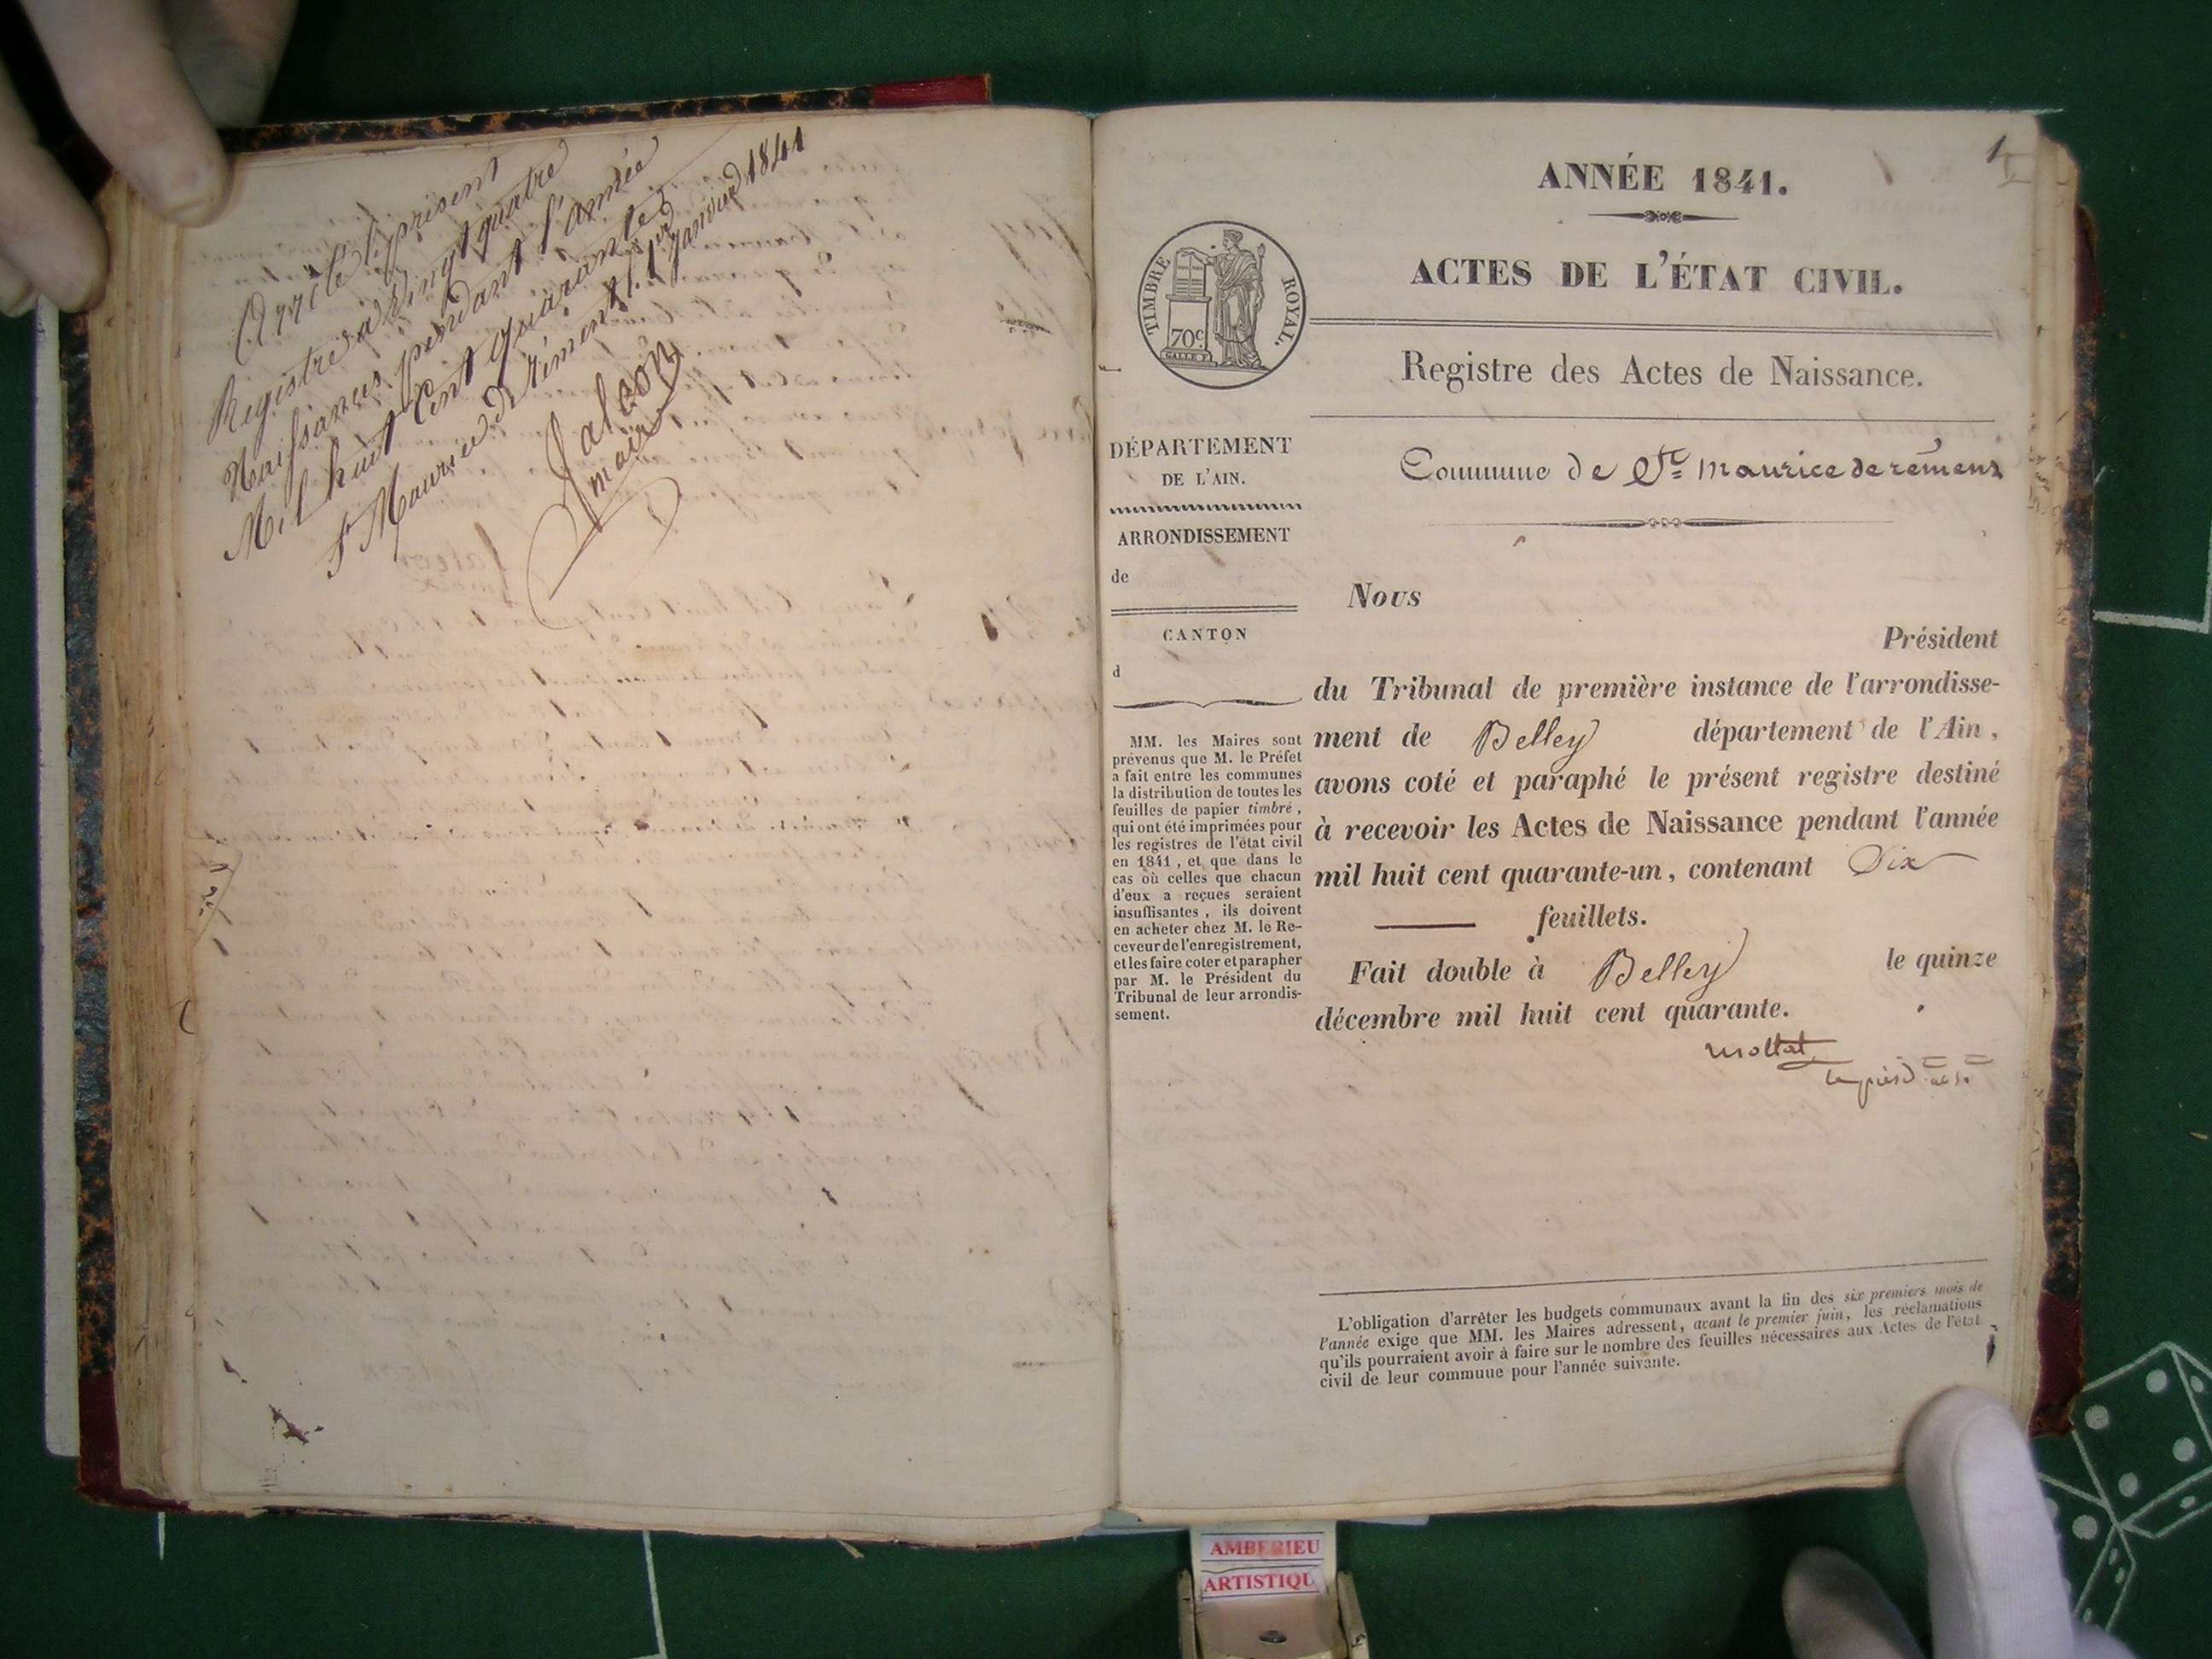 Arrêté le présent
Registre a vingt quatre
Naissances pendant l'année
Mil huit Cent quarante
St Maurice de Rémens le 1er Janvier 1841
falcon
maire
1
ANNÉE 1841.
ACTES DE L'ÉTAT CIVIL.
TIMBRE ROYAL.
70c
GALLE F.
Registre des Actes de Naissance.
DÉPARTEMENT
DE L'AIN.
ARRONDISSEMENT
de
CANTON
d
MM. les Maires sont
prévenus que M. le Préfet
a fait entre les communes
la distribution de toutes les
feuilles de papier timbré,
qui ont été imprimées pour
les registres de l'état civil
en 1841, et que dans le
cas où celles que chacun
d'eux a reçues seraient
insuffisantes, ils doivent
en acheter chez M. le Re-
ceveur de l'enregistrement,
et les faire coter et parapher
par M. le Président du
Tribunal de leur arrondis-
sement.
Commune de St maurice de rémens
Nous
Président
du Tribunal de première instance de l'arrondisse-
ment de Belley département de l'Ain,
avons coté et paraphé le présent registre destiné
à recevoir les Actes de Naissance pendant l'année
mil huit cent quarante-un, contenant Dix
feuillets.
Fait double à Belley le quinze
décembre mil huit cent quarante.
mottat
L'obligation d'arrêter les budgets communaux avant la fin des six premiers mois de
l'année exige que MM. les Maires adressent, avant le premier juin, les réclamations
qu'ils pourraient avoir à faire sur le nombre des feuilles nécessaires aux Actes de l'état
civil de leur commune pour l'année suivante.
AMBERIEU
ARTISTIQU